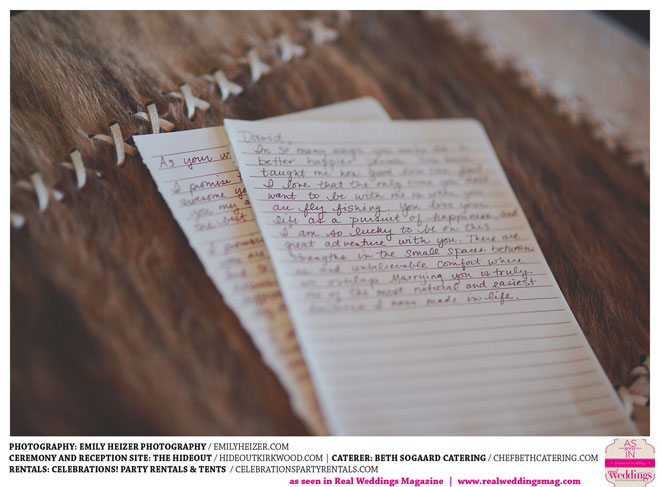 David,
In so many ways you make me a
better happier person. You have
taught me how
I love that the only time you don't
want to be with me is when you
are fly fishing. You love your
life as a pursuit of happiness, and
I am so lucky to be on this
great adventure with you. There are
strengths in the small spaces between
us and unbelievable comfort where
we overlap. Marrying you is truly
one of the most natural and easiest
decisions I have made in life.
As your w
I promise t
awesome yo
you my a
the best
I promise
you are
PHOTOGRAPHY: EMILY HEIZER PHOTOGRAPHY / EMILYHEIZER.COM
CEREMONY AND RECEPTION SITE: THE HIDEOUT / HIDEOUTKIRKWOOD.COM | CATERER: BETH SOGAARD CATERING / CHEFBETHCATERING.COM
RENTALS: CELEBRATIONS! PARTY RENTALS & TENTS / CELEBRATIONSPARTYRENTALS.COM
as seen in Real Weddings Magazine | www.realweddingsmag.com
AS
IN
Weddings